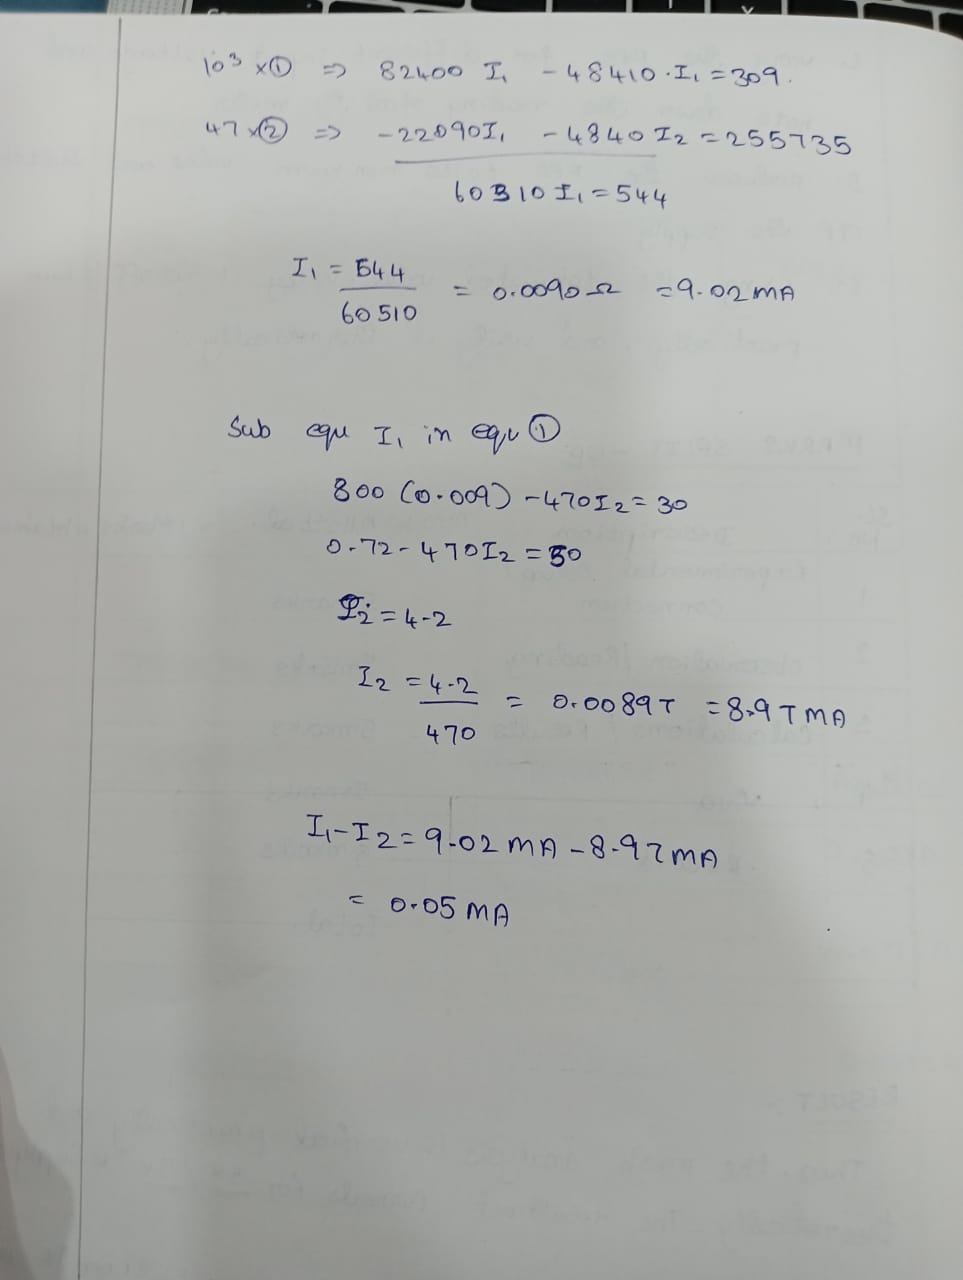 10³ x① ⇒ 82400 I₁ - 48410 · I₁ = 309.
47 x② ⇒ -22090I₁ - 4840 I₂ = 255735
60310 I₁ = 544
I₁ = 544 / 60510 = 0.0090 Ω = 9.02 mA
Sub equ I₁ in equ ①
800 (0.009) - 470I₂ = 30
0.72 - 470I₂ = 30
I₂ = 4.2
I₂ = 4.2 / 470 = 0.00897 = 8.97 mA
I₁ - I₂ = 9.02 mA - 8.97 mA
= 0.05 mA